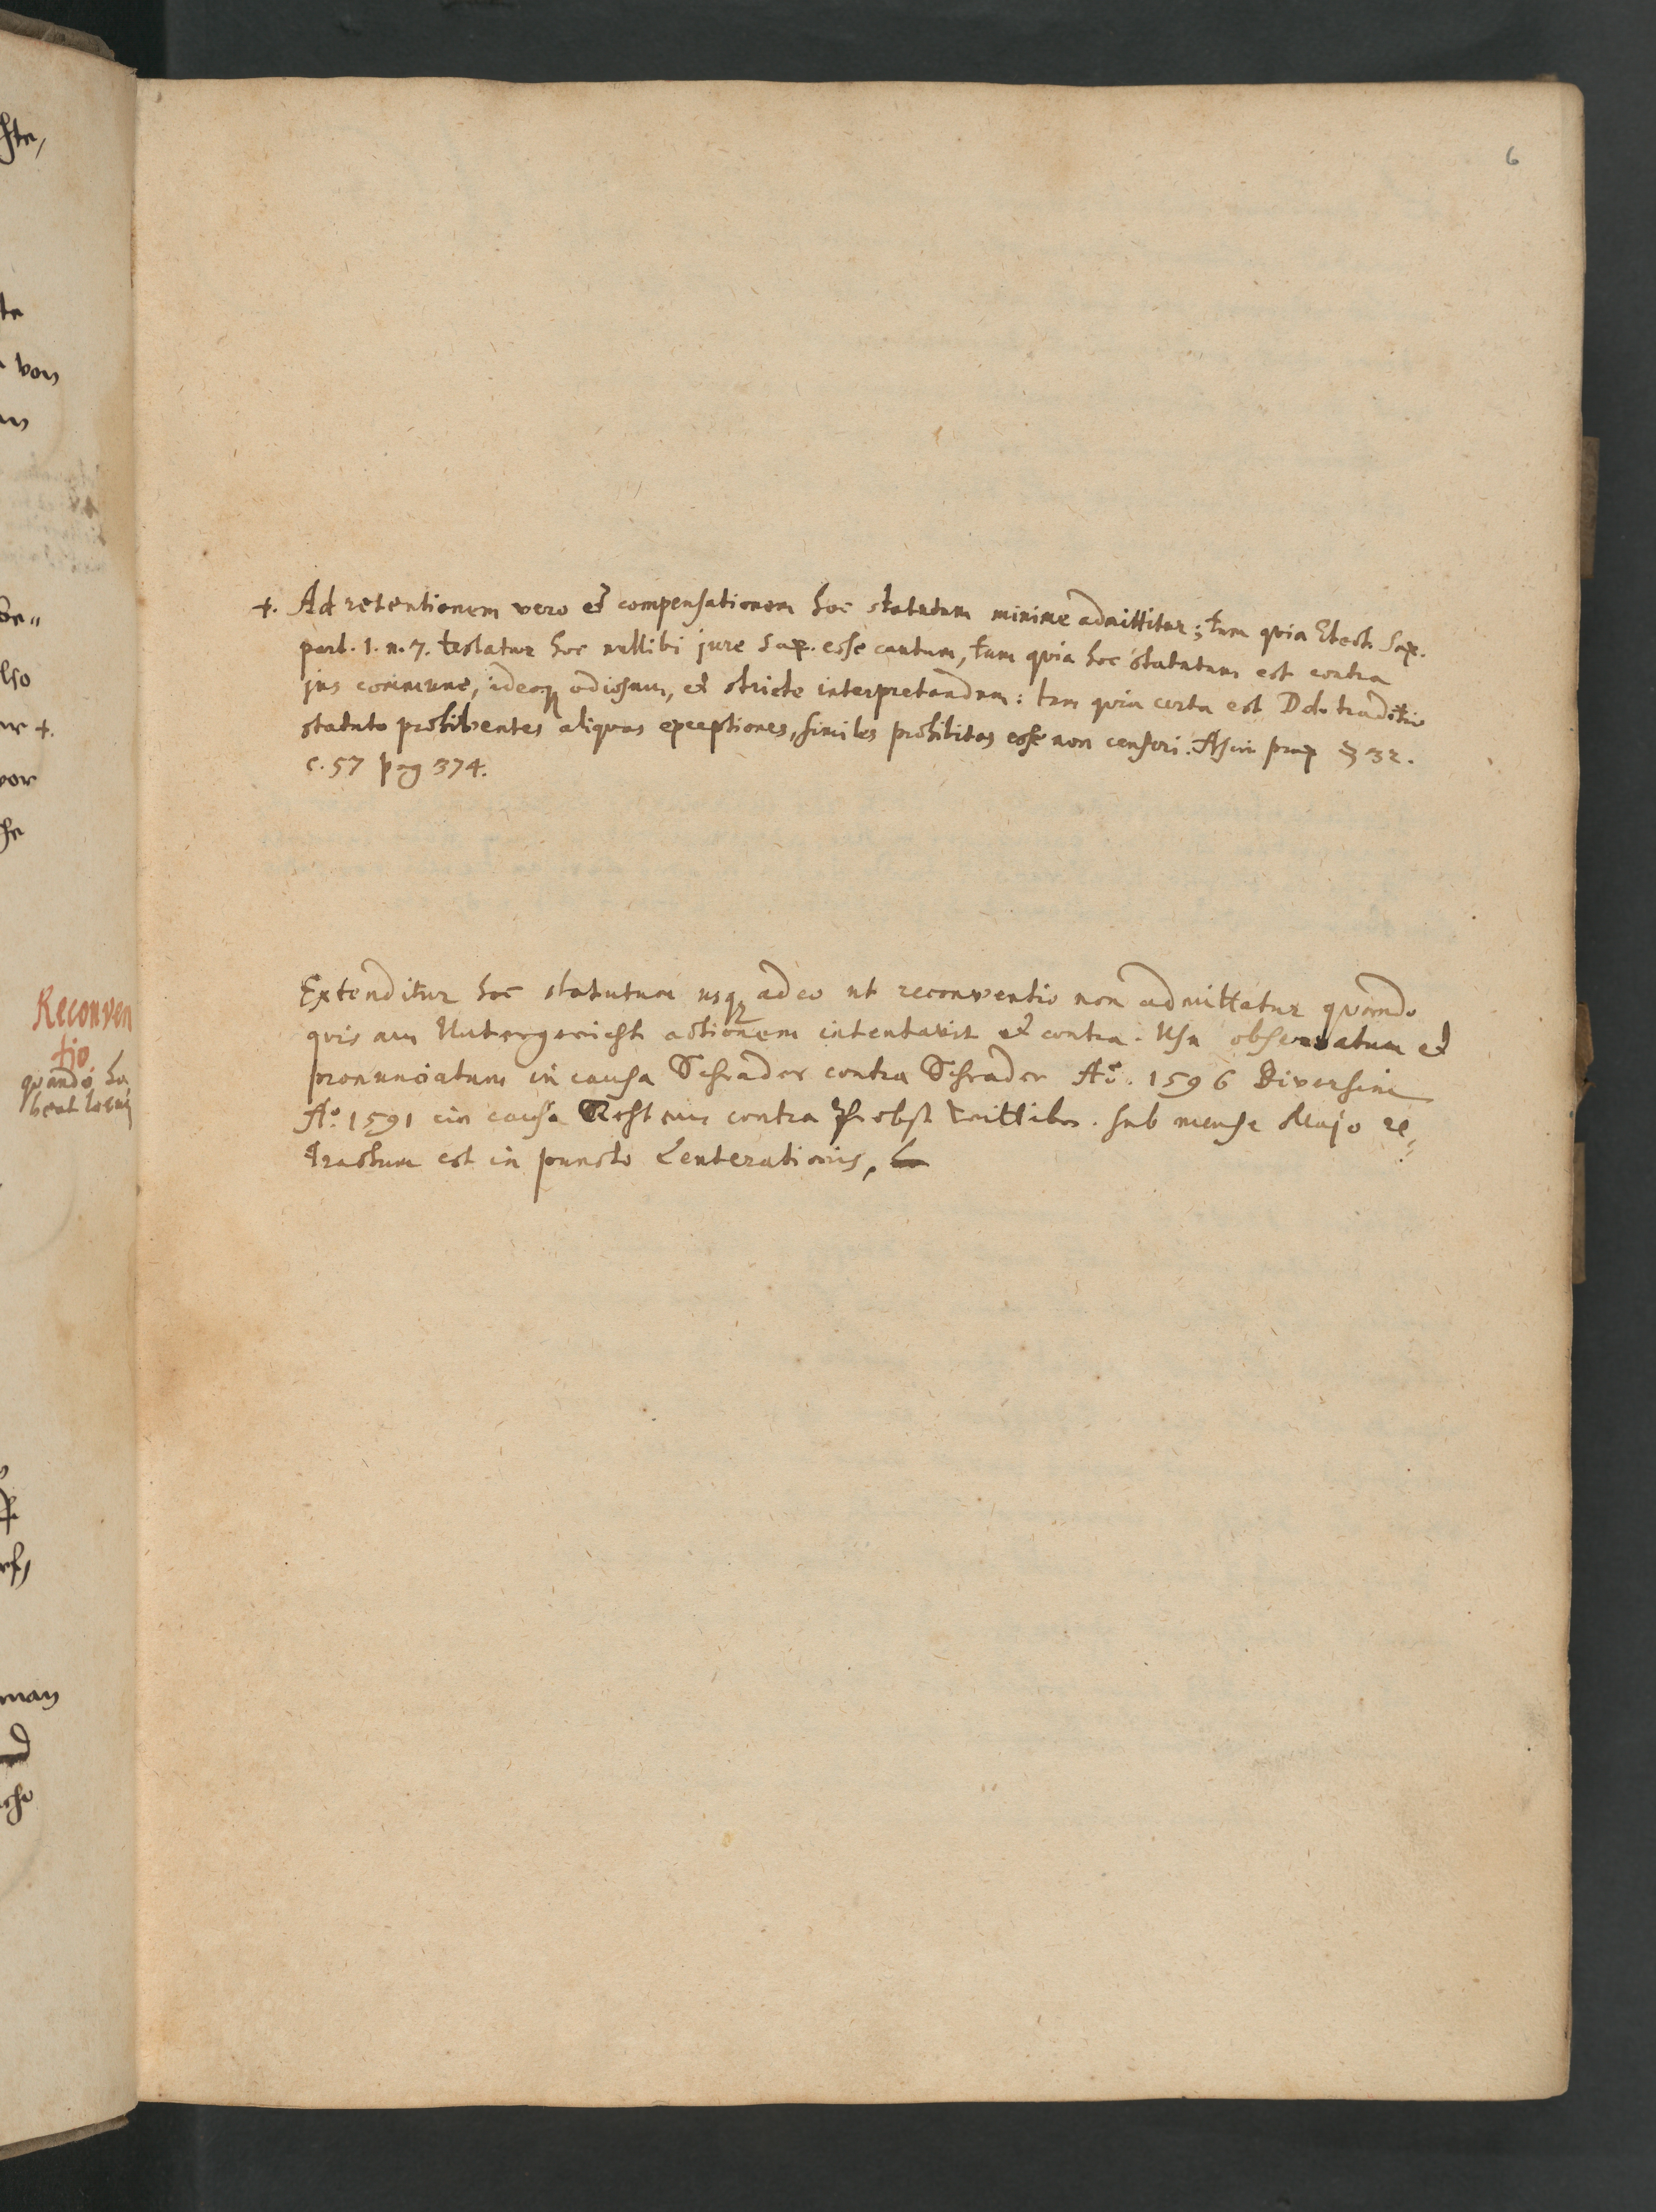 6
+. Ad retentionem vero et compensationem hoc statutum minime admittitur; tum quia Sax.
part. 1. n. 7. testatur hoc nullibi jure Sax. esse cautum, tum quia hoc statutum est contra
jus commune, ideoq odiosum, et stricte interpretandum: tum quia certa est Dd. traditio
statuto prohibentes aliquas exceptiones, similes prohibitas esse non censeri. § 32.
c. 57 pag 374.
Extenditur hoc statutum usq adeo ut reconventio non admittatur quando
quis am Untergericht actionem intentavit et contra. Usu observatum et
pronunciatum in causa Schrader contra Schrader Aō. 1596 Diversim
Aº. 1591 in causa contra Probst . sub mense Majo re„
tractum est in puncto Leuterationis,
Reconven
tio
quando ha
beat locum
von